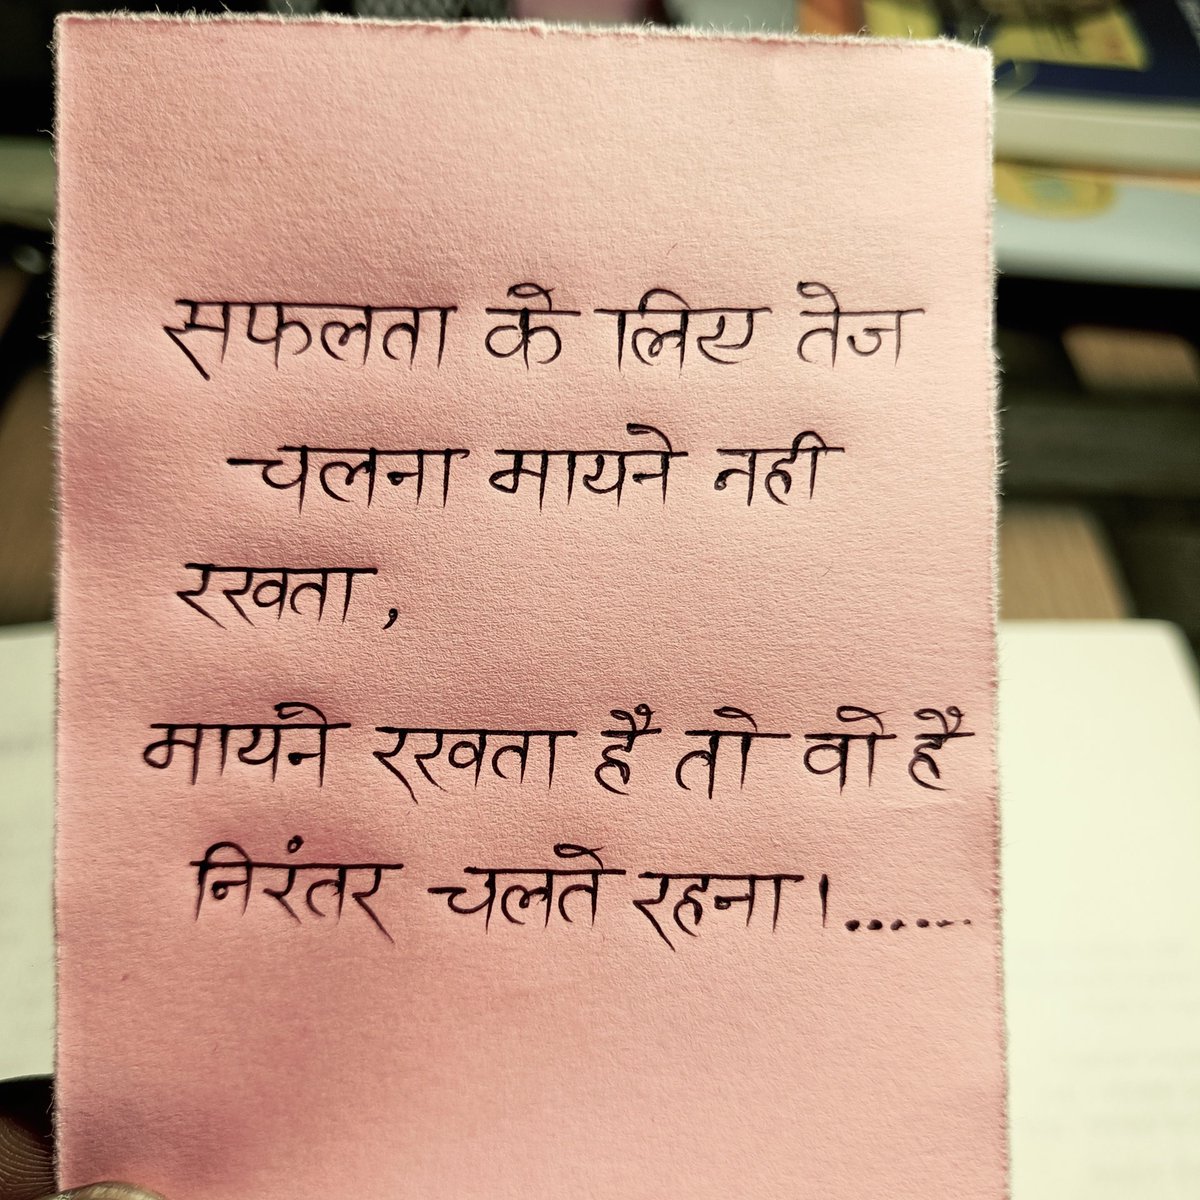 सफलता के लिए तेज
चलना मायने नही
रखता,
मायने रखता है तो वो है
निरंतर चलते रहना।......